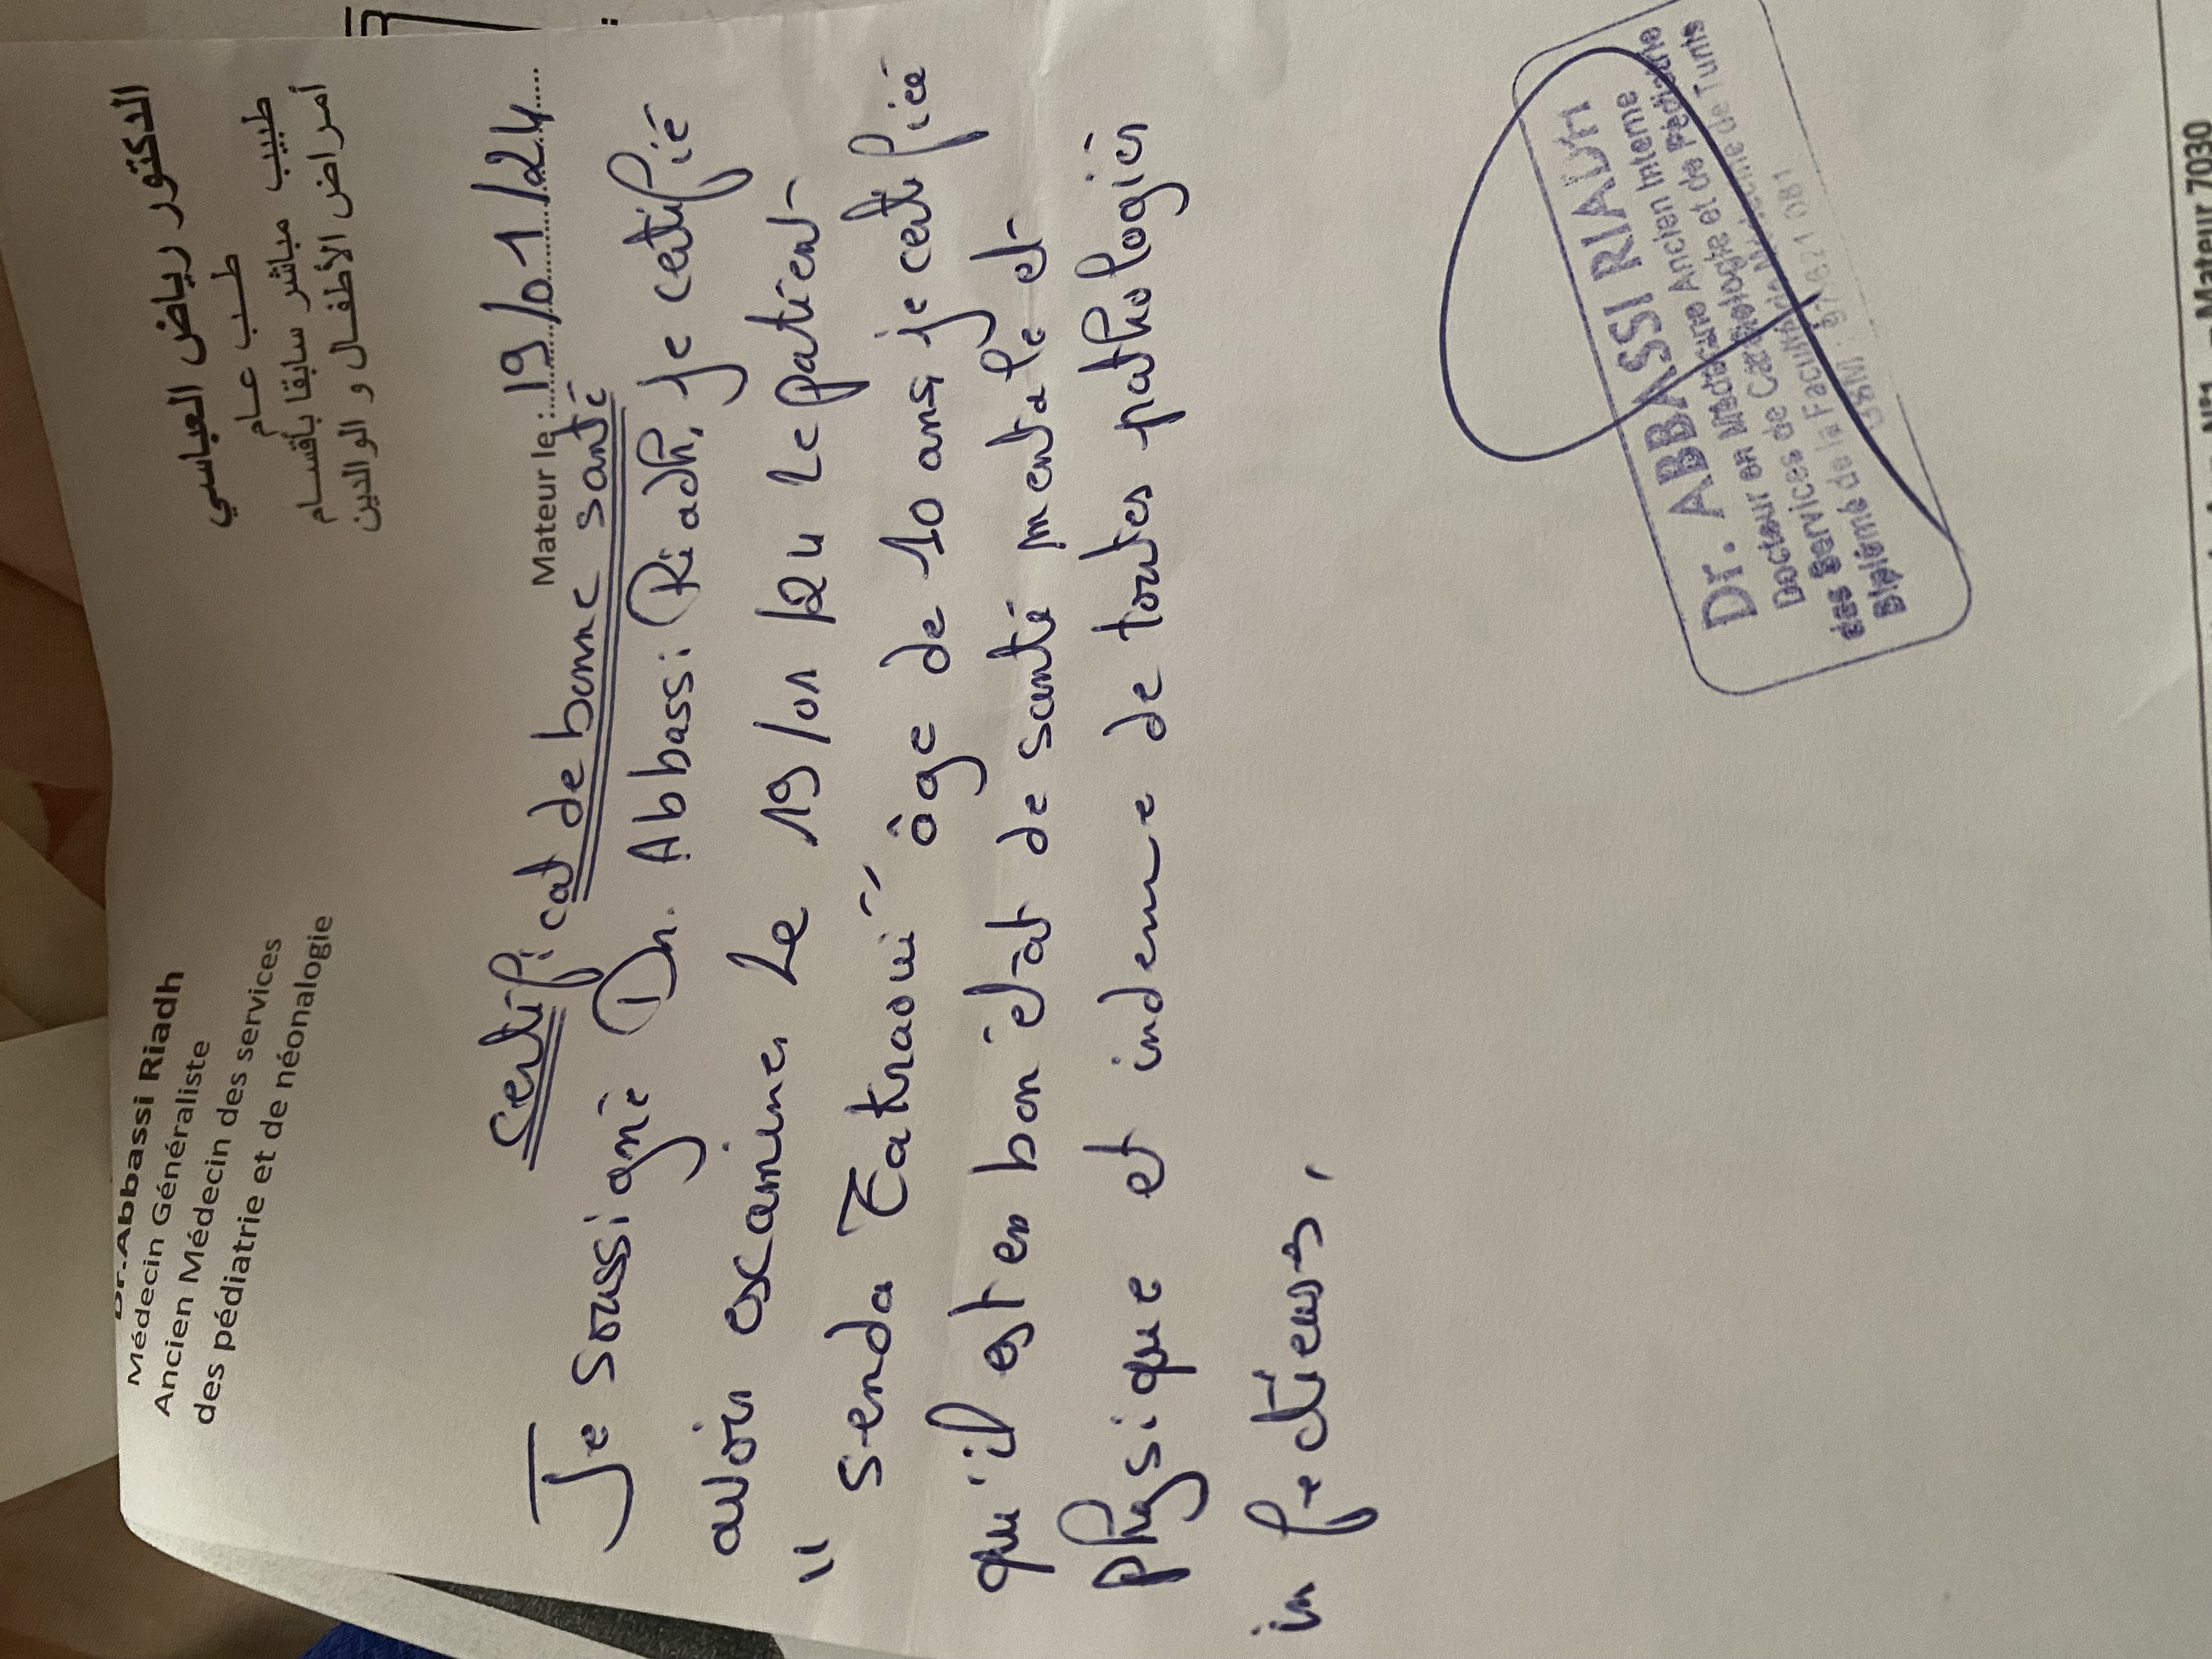 Dr.Abbassi Riadh
Médecin Généraliste
Ancien Médecin des services
des pédiatrie et de néonalogie
الدكتور رياض العباسي
طب عام
طبيب مباشر سابقا بأقسام
أمراض الأطفال و الوالدين
Mateur le : 19/01/24
Certificat de bonne santé
Je soussigné Dr. Abbassi Riadh, je certifié
avoir examiner Le 19/01/24 Le patient
" senda Tatraoui" âge de 10 ans je certifié
qu'il est en bon état de santé mentale et
physique et indemne de toutes pathologies
infectieuses.
Dr. ABBASSI RIADH
Docteur en Médecine Ancien Interne
des Services de Cardiologie et de Pédiatrie
Diplômé de la Faculté de Médecine de Tunis
Mateur 7030